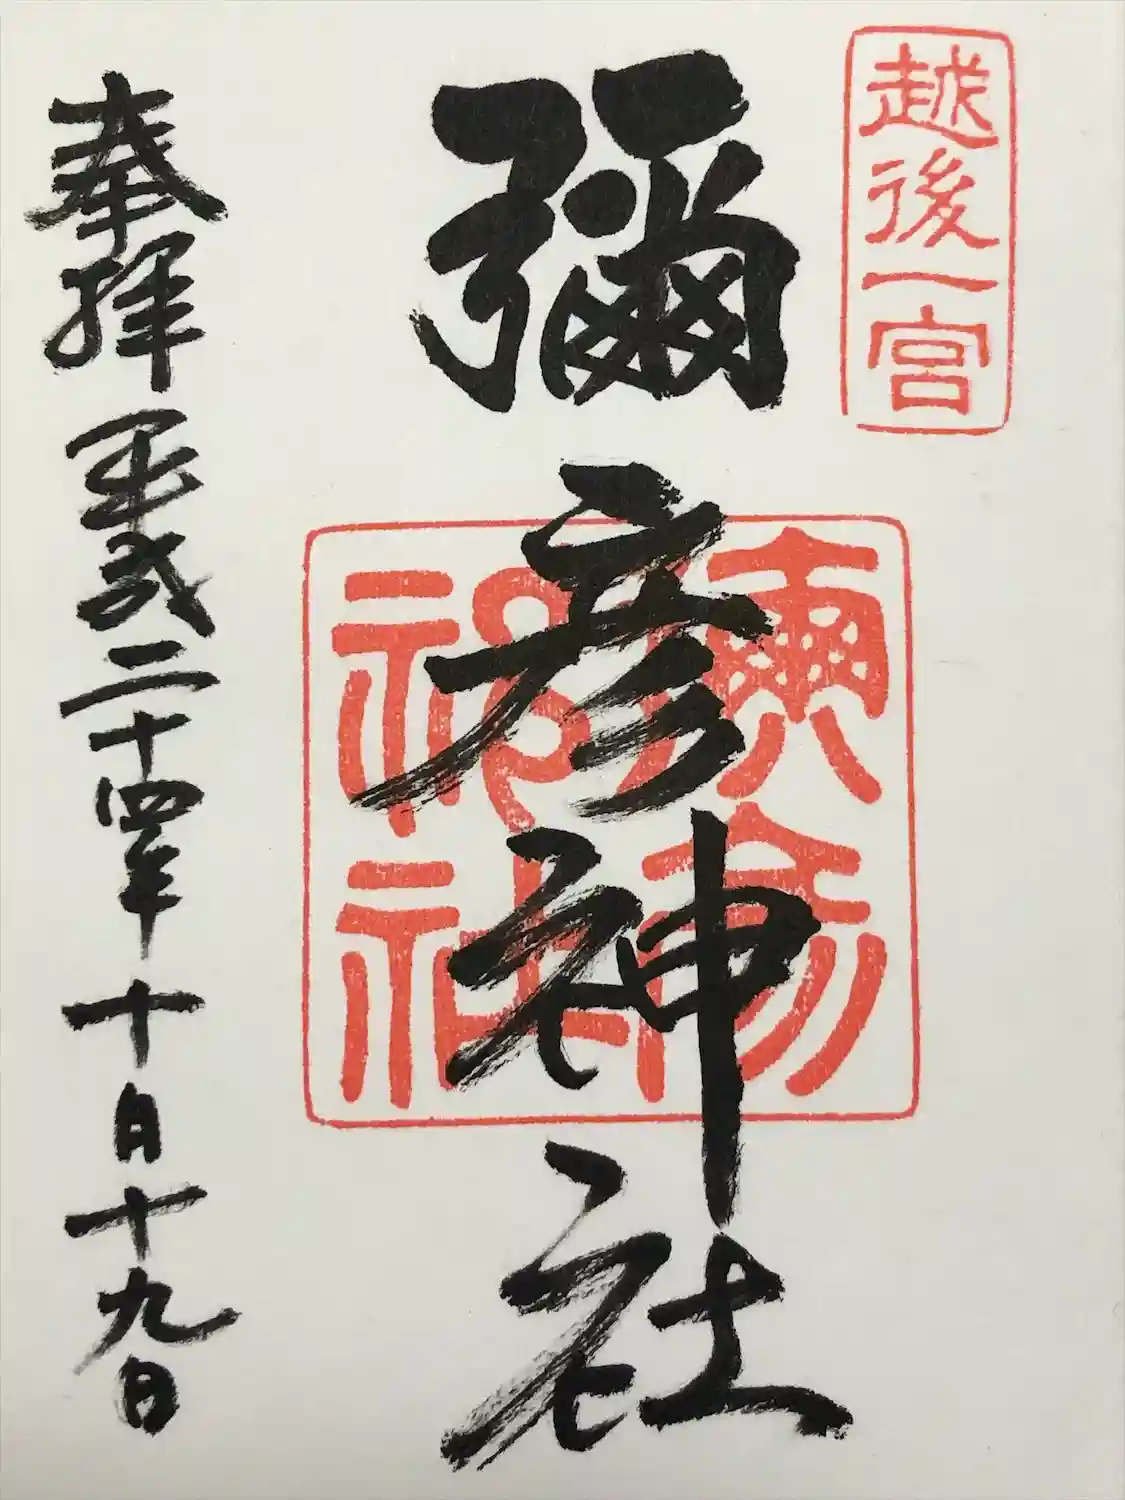 越後一宮
彌彦神社
奉拝 平成二十四年十月十九日